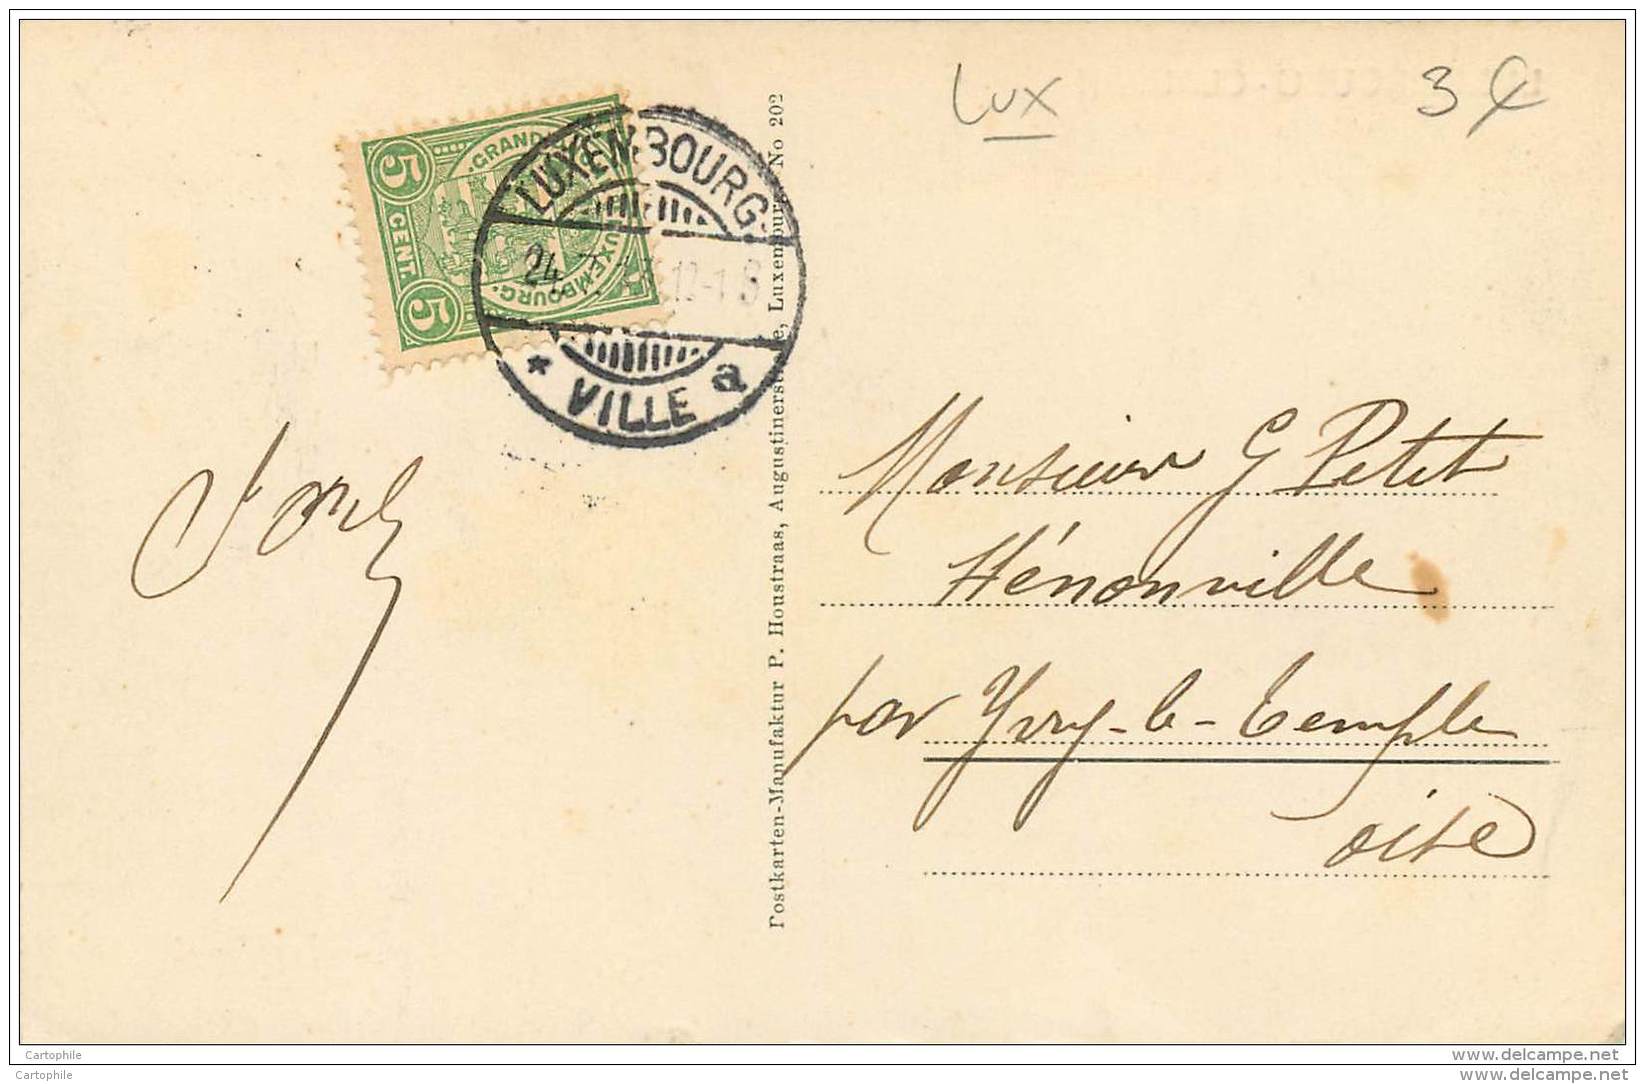 Lux
3 €
5
CENT.
5
GRAND
LUXEMBOURG
LUXEMBOURG
24. 12-1
* VILLE a
Postkarten-Manufaktur P. Houstraas, Augustinerstr e, Luxemburg No 202
Monsieur G Petit
Hénonville
par Yvry-le-Temple
Oise
www.delcampe.net
Cartophile
www.delcampe.net
Cartophile